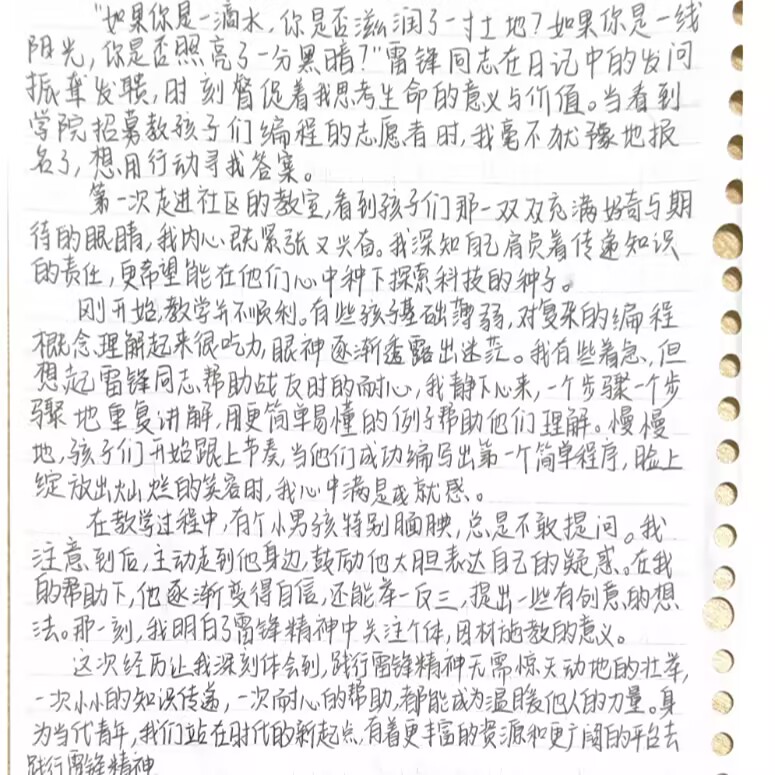 “如果你是一滴水,你是否滋润了一寸土地?如果你是一线
阳光,你是否照亮了一分黑暗?”雷锋同志在日记中的发问
振聋发聩,时刻督促着我思考生命的意义与价值。当看到
学院招募教孩子们编程的志愿者时,我毫不犹豫地报
名了,想用行动寻找答案。
第一次走进社区的教室,看到孩子们那一双双充满好奇与期
待的眼睛,我内心既紧张又兴奋。我深知自己肩负着传递知识
的责任,更希望能在他们心中种下探索科技的种子。
刚开始,教学并不顺利。有些孩子基础薄弱,对复杂的编程
概念理解起来很吃力,眼神逐渐透露出迷茫。我有些着急,但
想起雷锋同志帮助战友时的耐心,我静下心来,一个步骤一个步
骤地重复讲解,用更简单易懂的例子帮助他们理解。慢慢
地,孩子们开始跟上节奏,当他们成功编写出第一个简单程序,脸上
绽放出灿烂的笑容时,我心中满是成就感。
在教学过程中,有个小男孩特别腼腆,总是不敢提问。我
注意到后,主动走到他身边,鼓励他大胆表达自己的疑惑。在我
的帮助下,他逐渐变得自信,还能举一反三,提出一些有创意的想
法。那一刻,我明白了雷锋精神中关注个体,因材施教的意义。
这次经历让我深刻体会到,践行雷锋精神无需惊天动地的壮举,
一次小小的知识传递,一次耐心的帮助,都能成为温暖他人的力量。身
为当代青年,我们站在时代的新起点,有着更丰富的资源和更广阔的平台去
践行雷锋精神